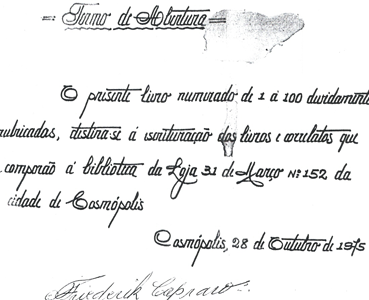 = Termo de Abertura =
O presente livro numerado de 1 á 100 devidamente
rubricadas, distina-se á escrituração dos livros e correlatos que
comporão á biblioteca da Loja 31 de Março Nº 152 da
cidade de Cosmópolis
Cosmópolis, 28 de Outubro de 1975
Frederik Capraro